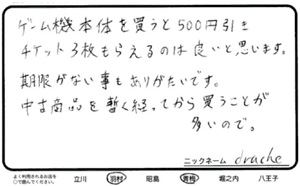 ゲーム機本体を買うと500円引き
チケット3枚もらえるのは良いと思います。
期限がない事もありがたいです。
中古商品を暫く経ってから買うことが
多いので。
ニックネーム drache
よく利用されるお店を
○で囲んでください。
立川 羽村 昭島 青梅 堀之内 八王子